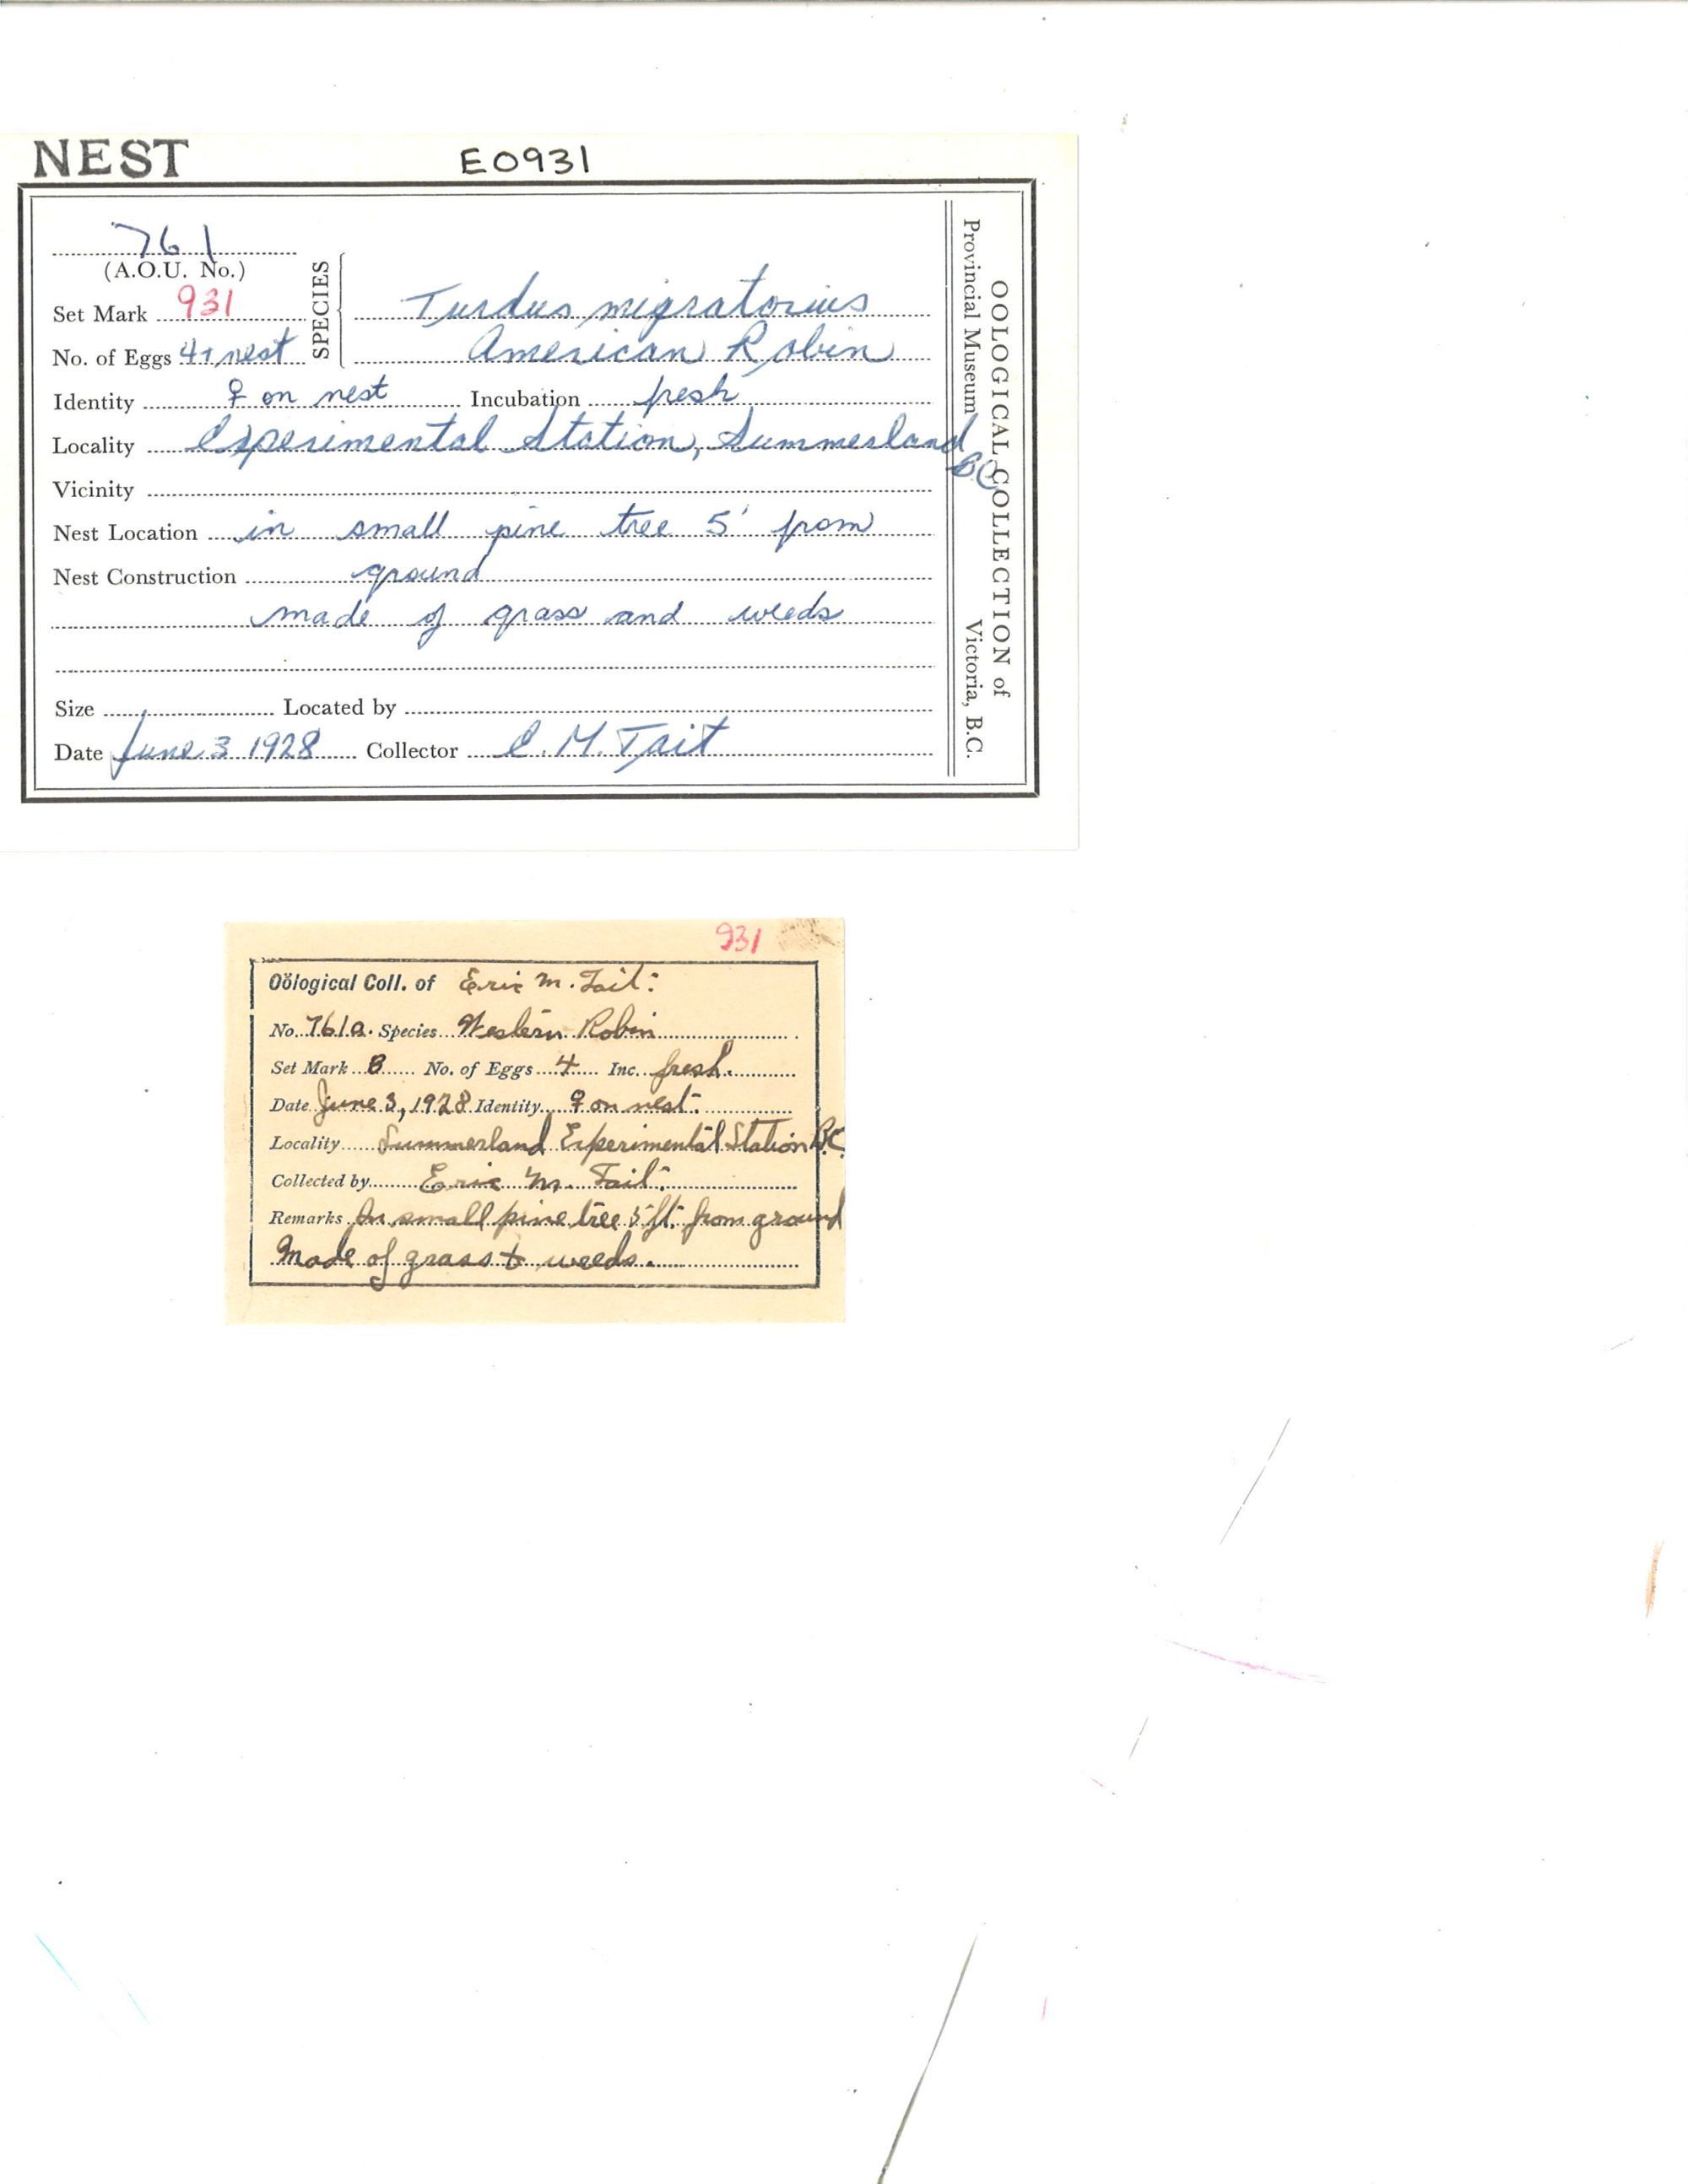 NEST
E0931
761
(A.O.U. No.)
SPECIES
Set Mark 931
Turdus migratorius
No. of Eggs 4+nest
American Robin
Identity ♀ on nest Incubation fresh
Locality Experimental Station, Summerland BC
Vicinity
Nest Location in small pine tree 5' from
Nest Construction ground
made of grass and weeds
Size Located by
Date June 3 1928 Collector E. M. Tait
OOLOGICAL COLLECTION of
Provincial Museum Victoria, B.C.
931
Oölogical Coll. of Eric M. Tait.
No. 761a. Species Western Robin
Set Mark B No. of Eggs 4 Inc. fresh.
Date June 3, 1928 Identity ♀ on nest.
Locality Summerland Experimental Station B.C.
Collected by Eric M. Tait.
Remarks In small pine tree 5 ft. from ground
Made of grass & weeds.